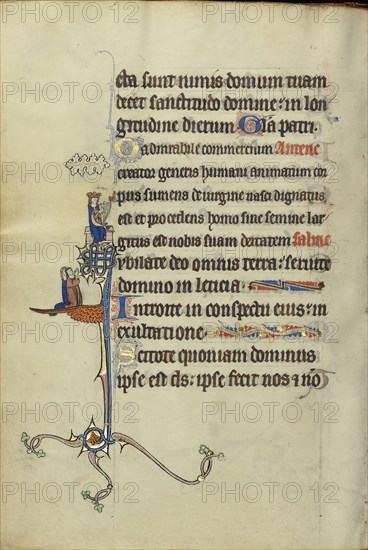 cta sunt nimis domum tuam
decet sanctitudo domine: in lon
gitudine dierum Gła patri.
O admirabile commercium
creator generis humani animatum cor
pus sumens de uirgine nasci dignatus
est et procedens homo sine semine lar
gitus est nobis suam deitatem
ybilate deo omnis terra: seruite
domino in leticia
Introite in conspectu eius: in
exultatione
Scitote quoniam dominus
ipse est ds: ipse fecit nos ⁊ nō